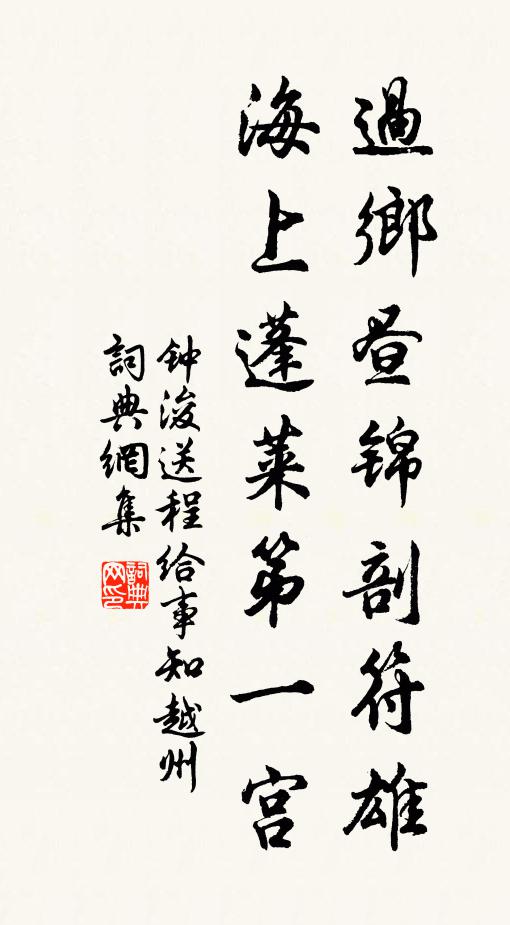 過鄉昼錦剖符雄
海上蓬萊第一宫
钟浚送程给事知越州
詞典網集
詞典
网印